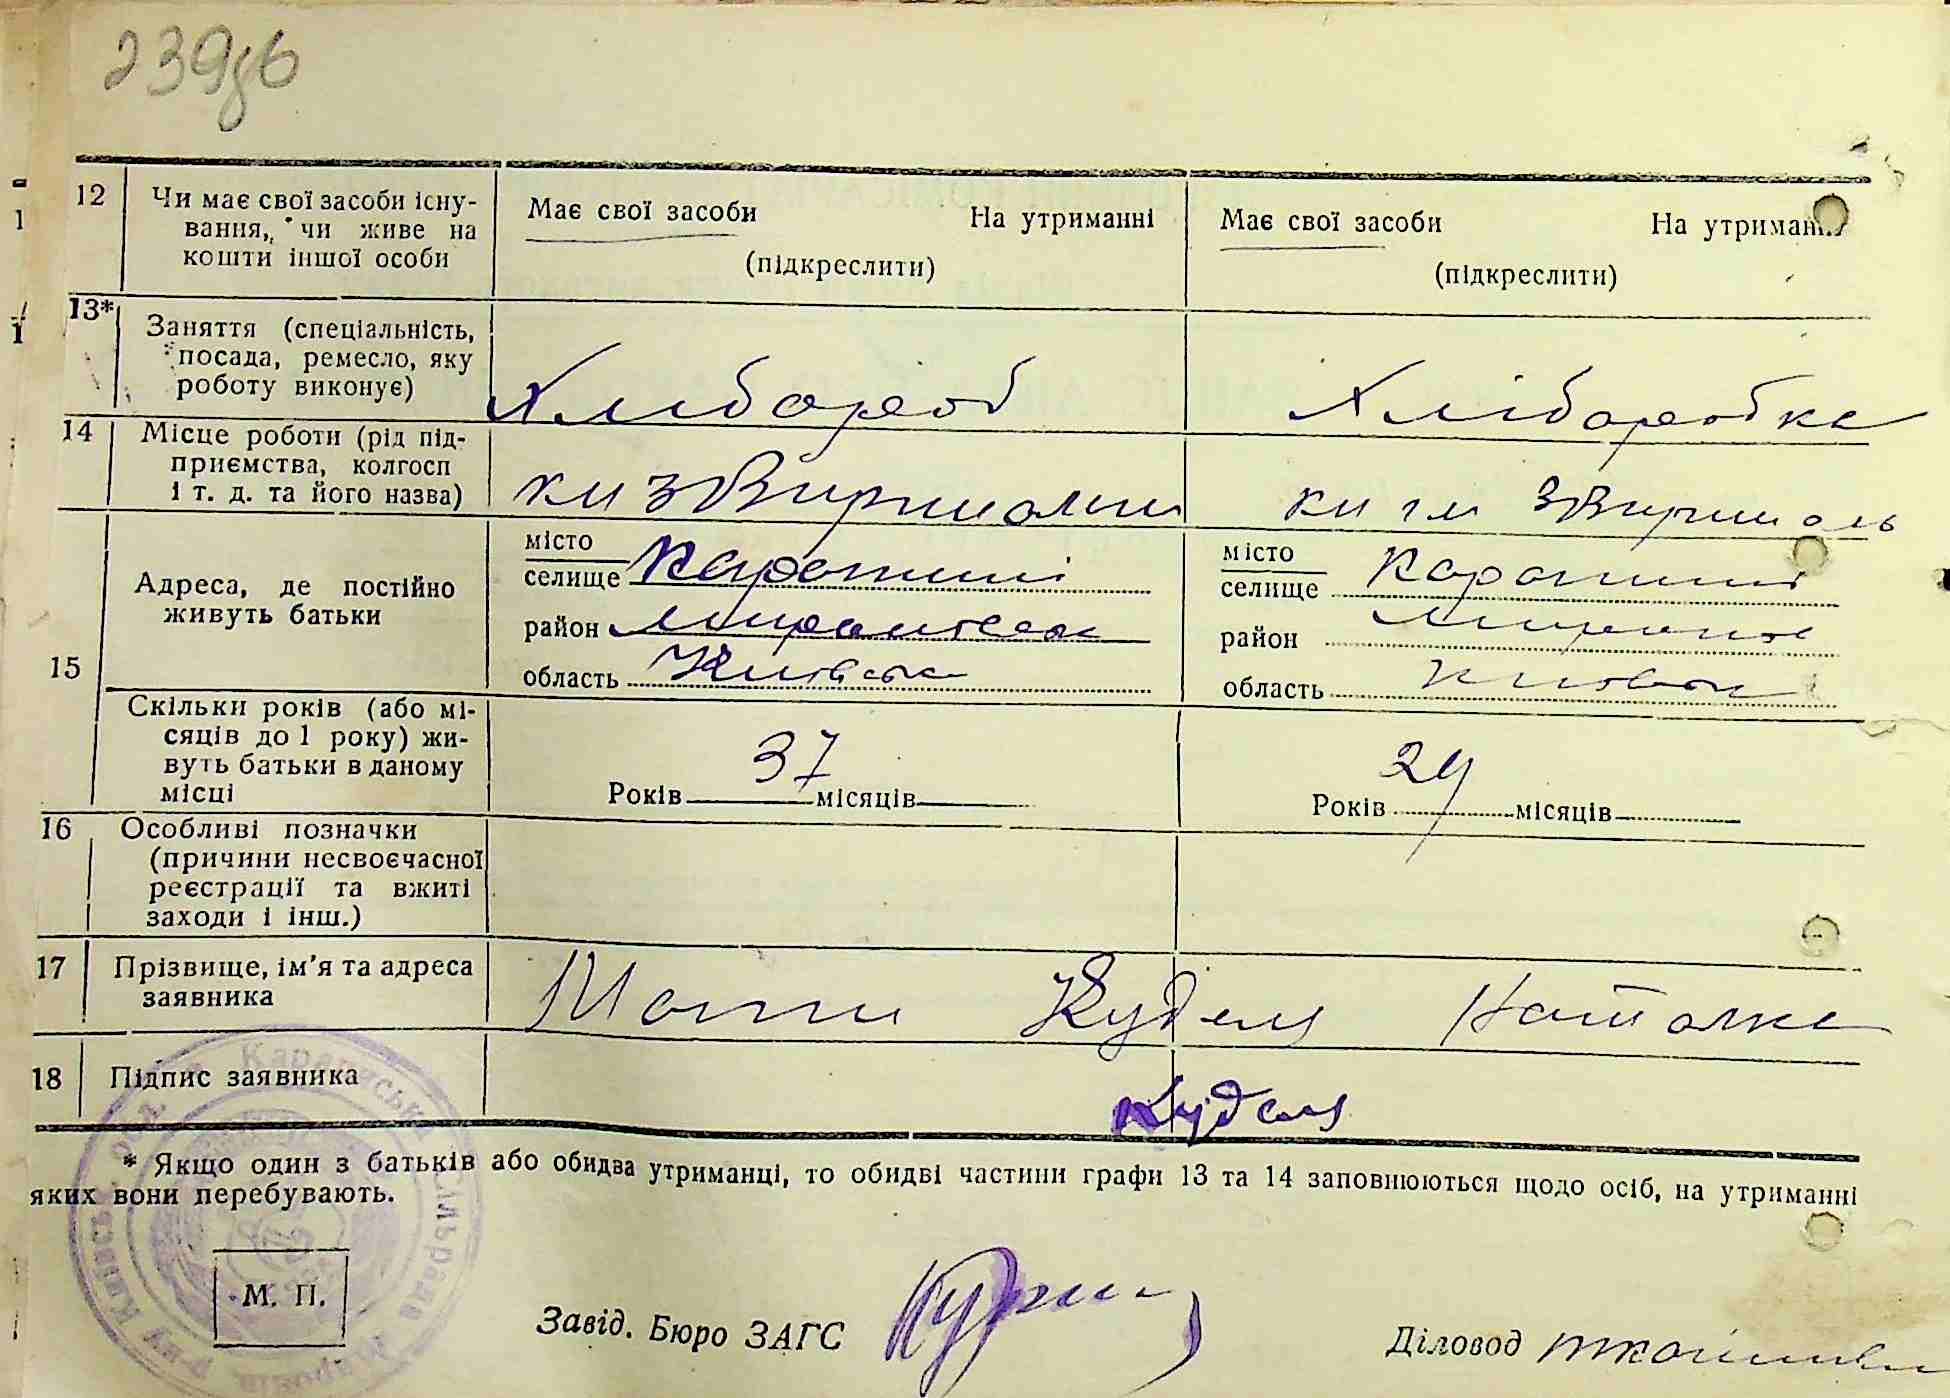 239зв
12 Чи має свої засоби існу-
вання, чи живе на
кошти іншої особи
Має свої засоби На утриманні
(підкреслити)
Має свої засоби На утриманні
(підкреслити)
13* Заняття (спеціальність,
посада, ремесло, яку
роботу виконує)
Хлібороб
Хліборобка
14 Місце роботи (рід під-
приємства, колгосп
і т. д. та його назва)
15 Адреса, де постійно
живуть батьки
місто
селище Карапиші
район
область Київськ
місто
селище Карапиші
район
область
Скільки років (або мі-
сяців до 1 року) жи-
вуть батьки в даному
місці
Років 37 місяців
Років 24 місяців
16 Особливі позначки
(причини несвоєчасної
реєстрації та вжиті
заходи і інш.)
17 Прізвище, ім'я та адреса
заявника
Мати Куделя Наталка
18 Підпис заявника
Куделя
* Якщо один з батьків або обидва утриманці, то обидві частини графи 13 та 14 заповнюються щодо осіб, на утриманні
яких вони перебувають.
М. П.
Завід. Бюро ЗАГС
Діловод